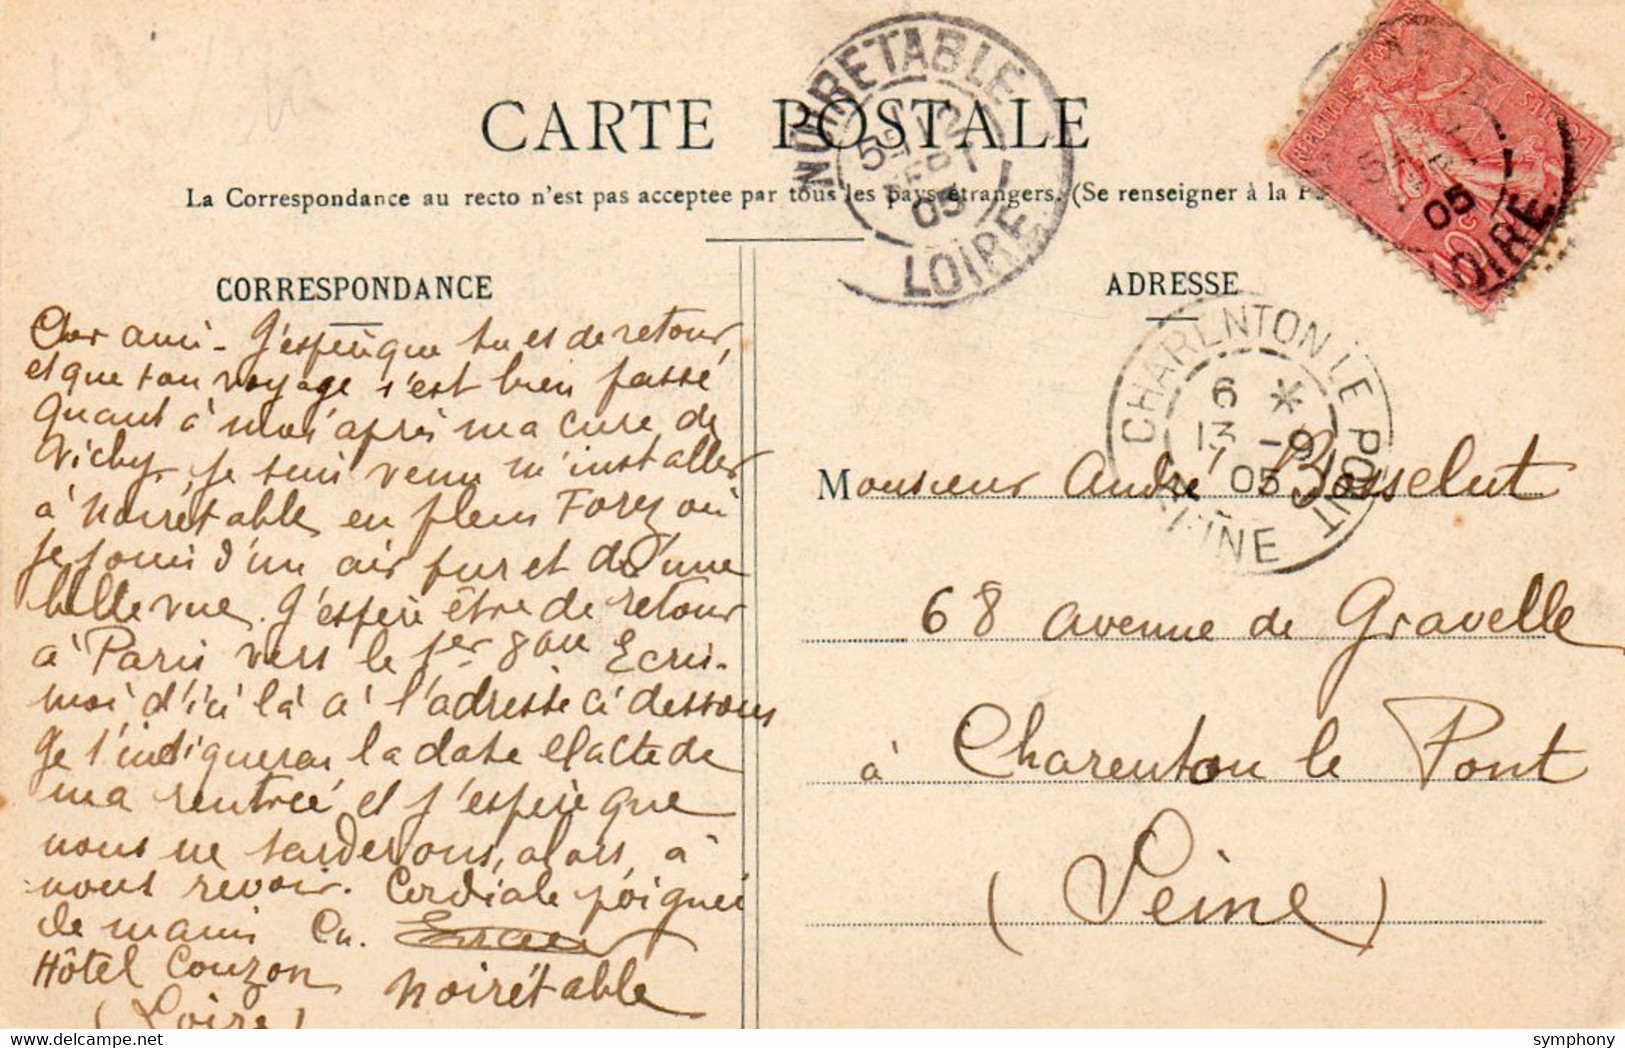 CARTE POSTALE
La Correspondance au recto n'est pas acceptee par tous les pays étrangers. (Se renseigner à la
NOIRETABLE
12
SEPT
05
LOIRE
REPUBLIQUE FRAN
POSTES
10 c
05
LOIRE
CORRESPONDANCE
Cher ami - J'espère que tu es de retour,
et que ton voyage s'est bien passé
Quant à moi après ma cure de
Vichy, je suis venu m'installer
à Noirétable en plein Forez où
je jouis d'un air pur et d'une
belle vue. J'espère être de retour
à Paris vers le 1er 8bre Ecris-
moi d'ici là à l'adresse ci dessous
Je t'indiquerai la date exacte de
ma rentrée et j'espère que
nous ne tarderons, alors, à
nous revoir. Cordiale poignée
de mains Ch.
Hôtel Couzon Noirétable
(Loire)
ADRESSE
CHARENTON LE PONT
6 *
13 - 9
05
SEINE
Monsieur André Bosselut
68 avenue de Gravelle
à Charenton le Pont
(Seine)
symphony